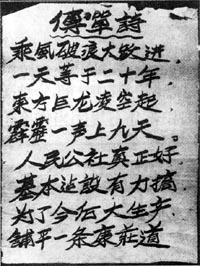 傳單詩
乘風破浪大躍进，
一天等于二十年，
東方巨龙凌空起
霹靂一声上九天。
人民公社真正好
基本建設有力搞
为了今后大生产
鋪平一条康莊道